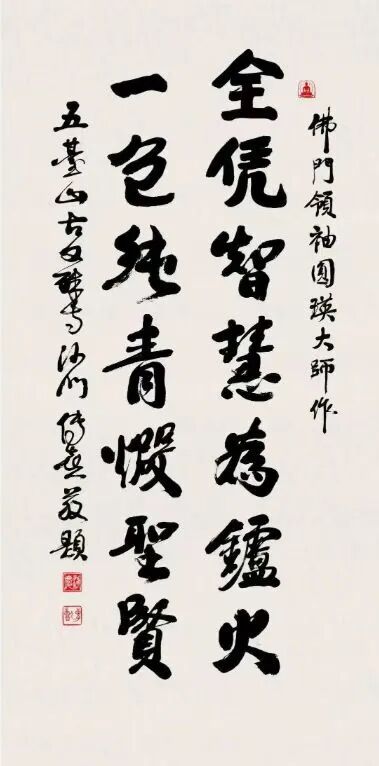 佛門領袖圓瑛大師作
全凭智慧為鑪火
一色純青煅聖賢
五臺山古文殊寺沙門傳無敬題